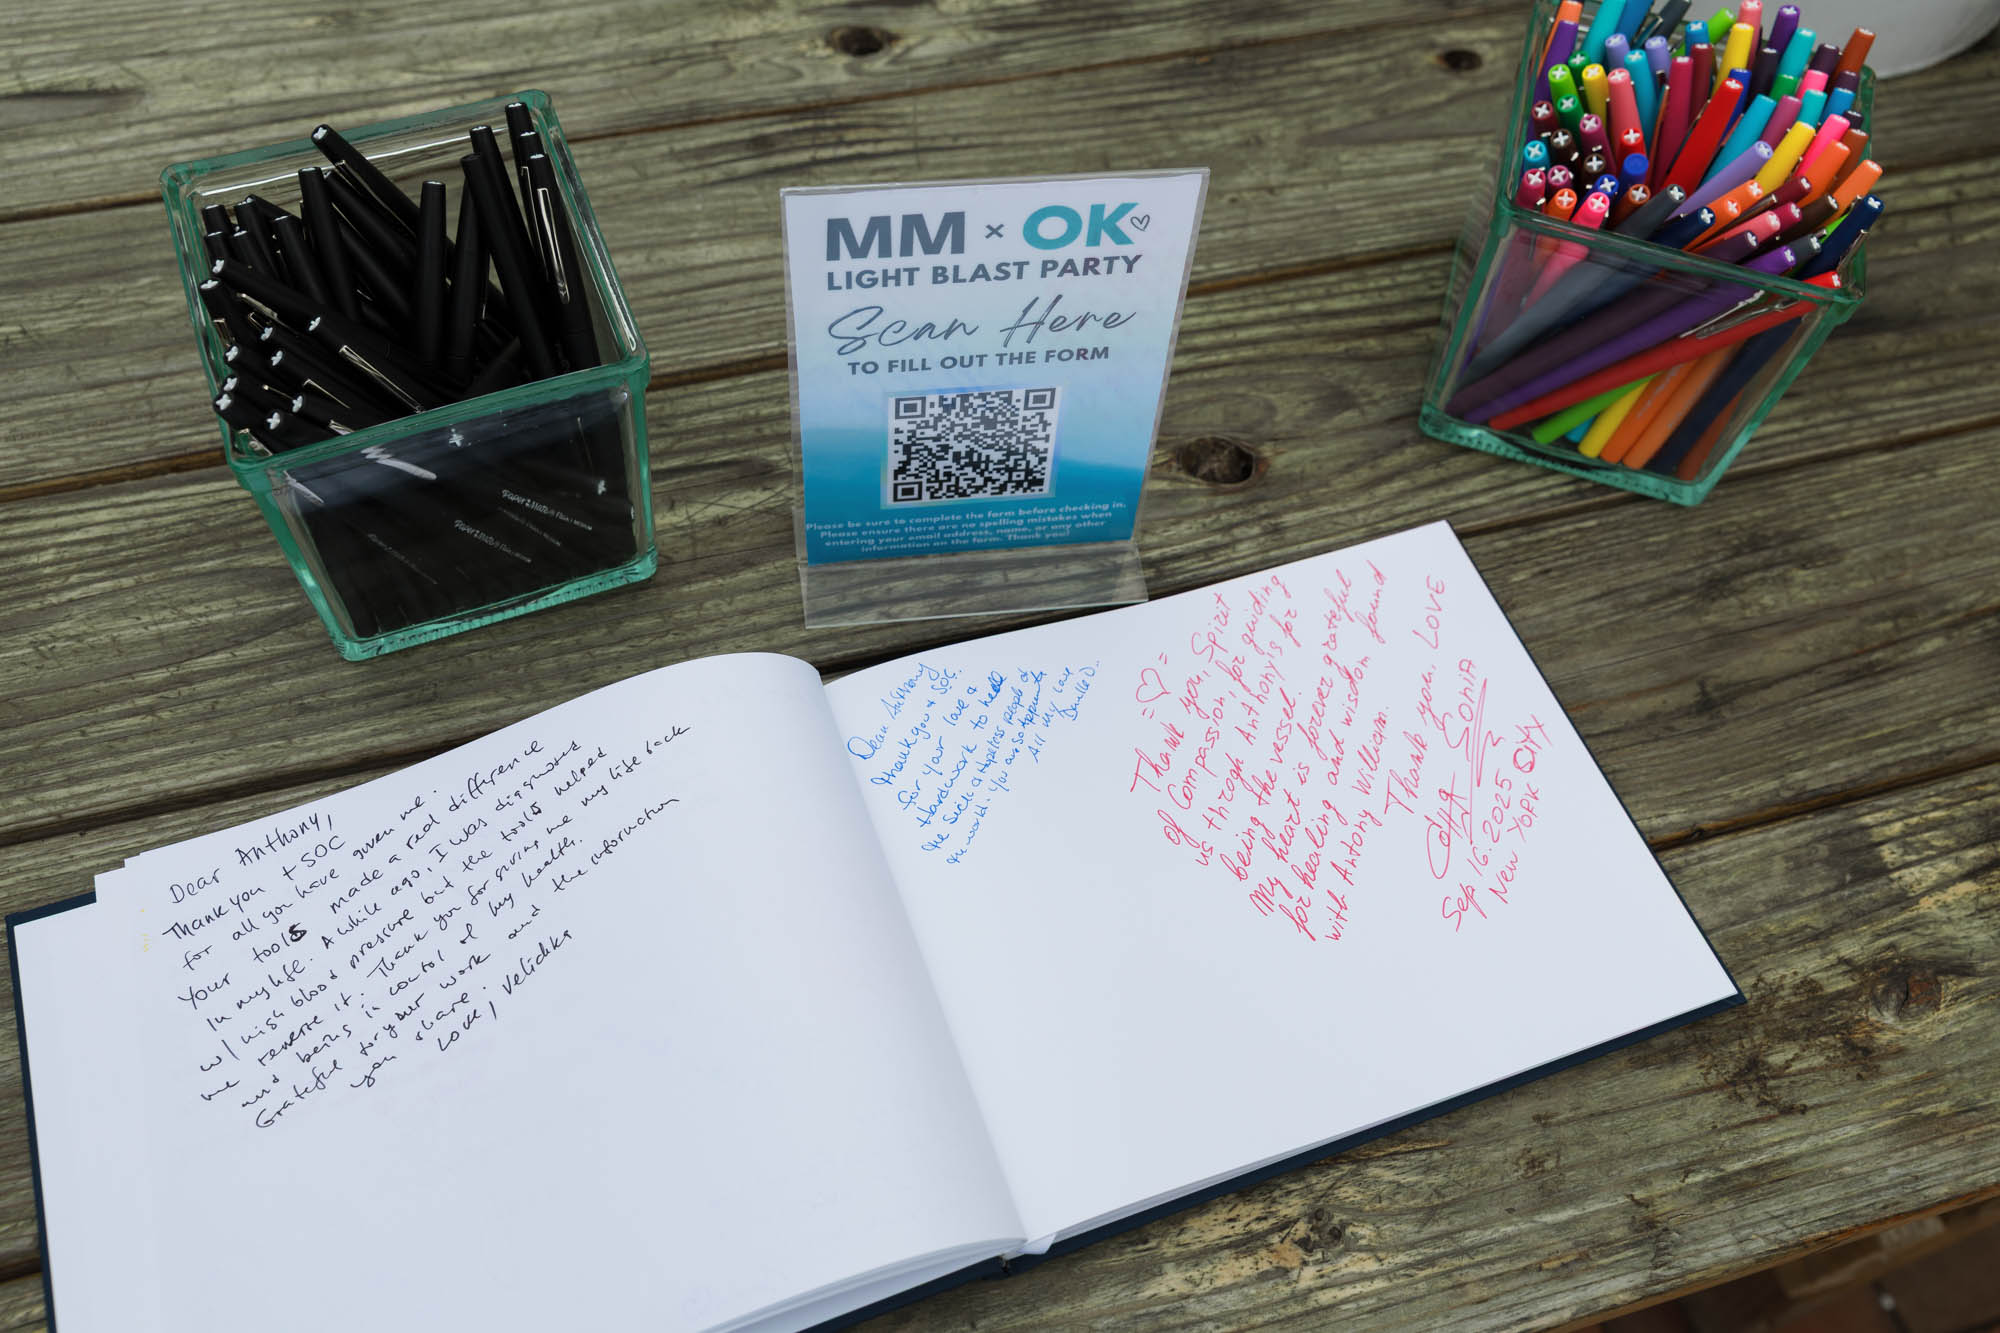 MM × OK
LIGHT BLAST PARTY
Scan Here
TO FILL OUT THE FORM
Please be sure to complete the form before checking in.
Please ensure there are no spelling mistakes when
entering your email address, name, or any other
information on the form. Thank you!
Dear Anthony,
Thank you + SOC
for all you have given me.
Your tools made a real difference
in my life. A while ago, I was diagnosed
w/ high blood pressure but the tools helped
me reverse it. Thank you for giving me my life back
and being in control of my health.
Grateful for your work and the information
you share.
Love,
Dear Anthony
thank you & SOC.
for your love &
Hardwork to heal
the Sick & Hopeless people of
the world. You are so Appreciated
All my love
Danielle D.
Thank you, Spirit
of Compassion, for guiding
us through Anthony is for
being the vessel.
My heart is forever grateful
for healing and wisdom found
with Antony William.
Thank you. LOVE
SONIA
Sep 16. 2025
New York City
paper:mate
paper:mate